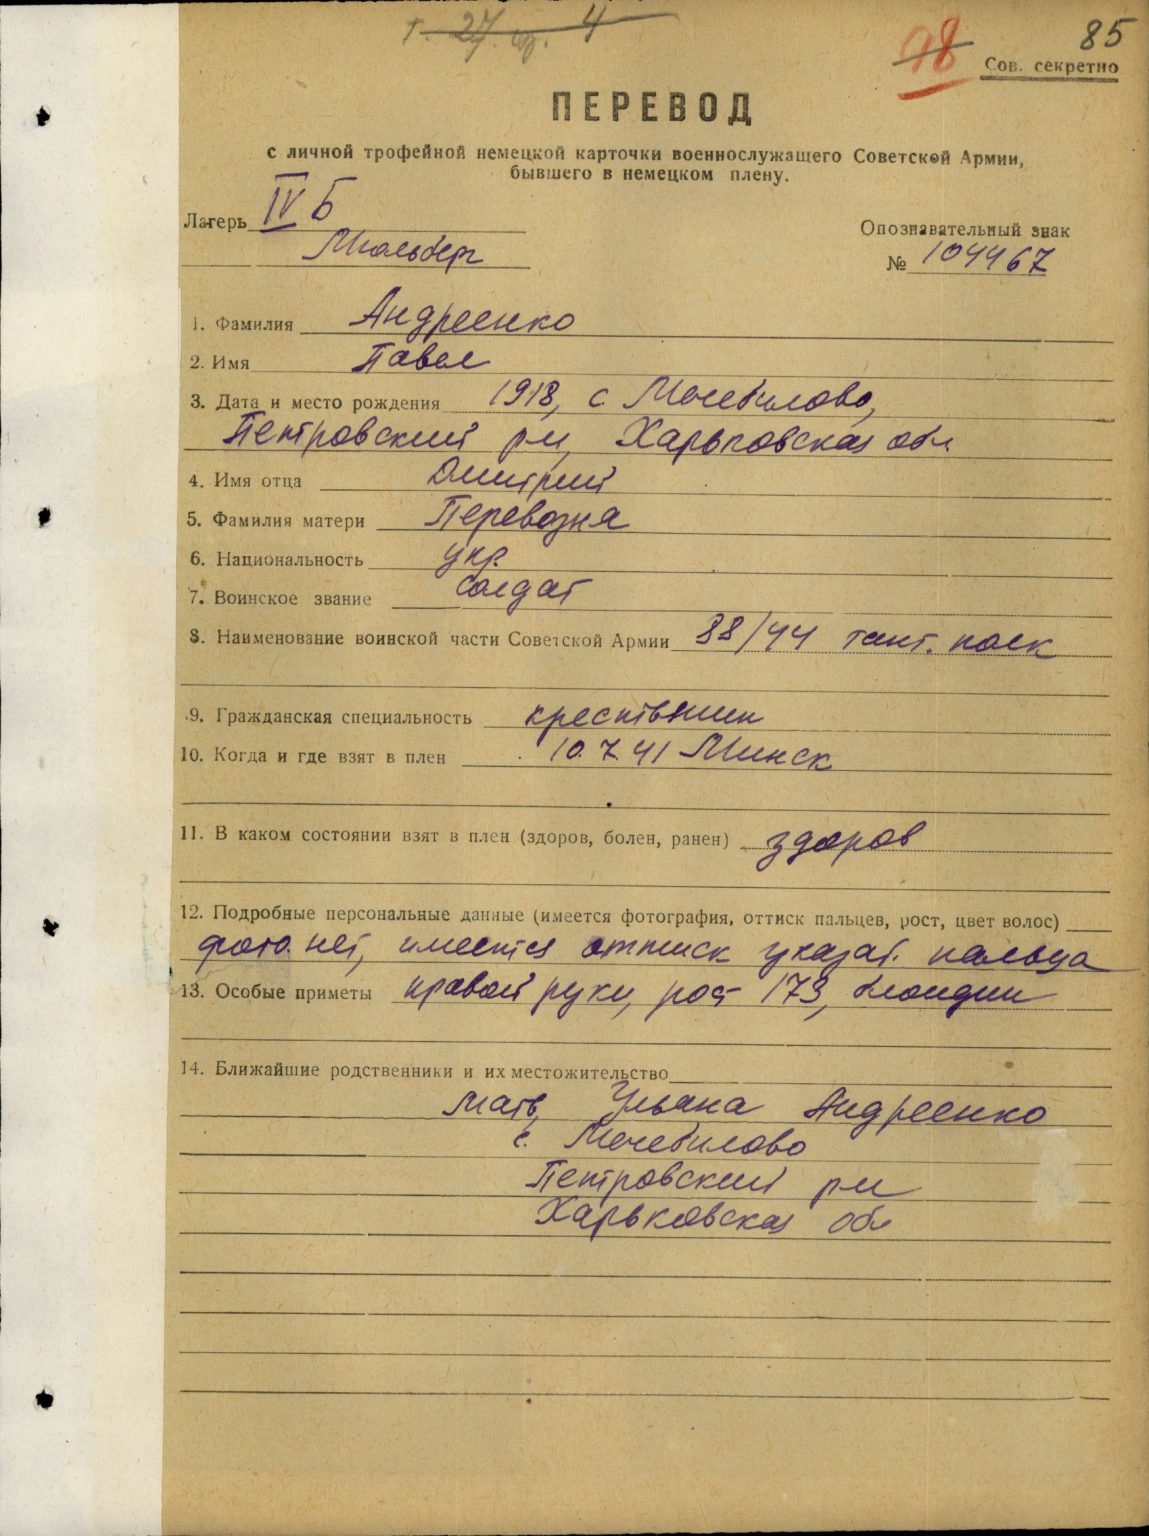 т. 27 ф. 4
98
85
Сов. секретно
ПЕРЕВОД
с личной трофейной немецкой карточки военнослужащего Советской Армии,
бывшего в немецком плену.
Лагерь IV Б
Мюльберг
Опознавательный знак
№ 104467
1. Фамилия Андреенко
2. Имя Павел
3. Дата и место рождения 1918, с. Мечебилово,
Петровский р-н, Харьковская обл
4. Имя отца Дмитрий
5. Фамилия матери Перевозня
6. Национальность укр.
7. Воинское звание солдат
8. Наименование воинской части Советской Армии 88/44 танк. полк
9. Гражданская специальность крестьянин
10. Когда и где взят в плен 10.7.41 Минск
11. В каком состоянии взят в плен (здоров, болен, ранен) здоров
12. Подробные персональные данные (имеется фотография, оттиск пальцев, рост, цвет волос)
фото нет, имеется оттиск указат. пальца
13. Особые приметы правой руки, рост 173, блондин
14. Ближайшие родственники и их местожительство
мать, Ульяна Андреенко
с. Мечебилово
Петровский р-н
Харьковская обл